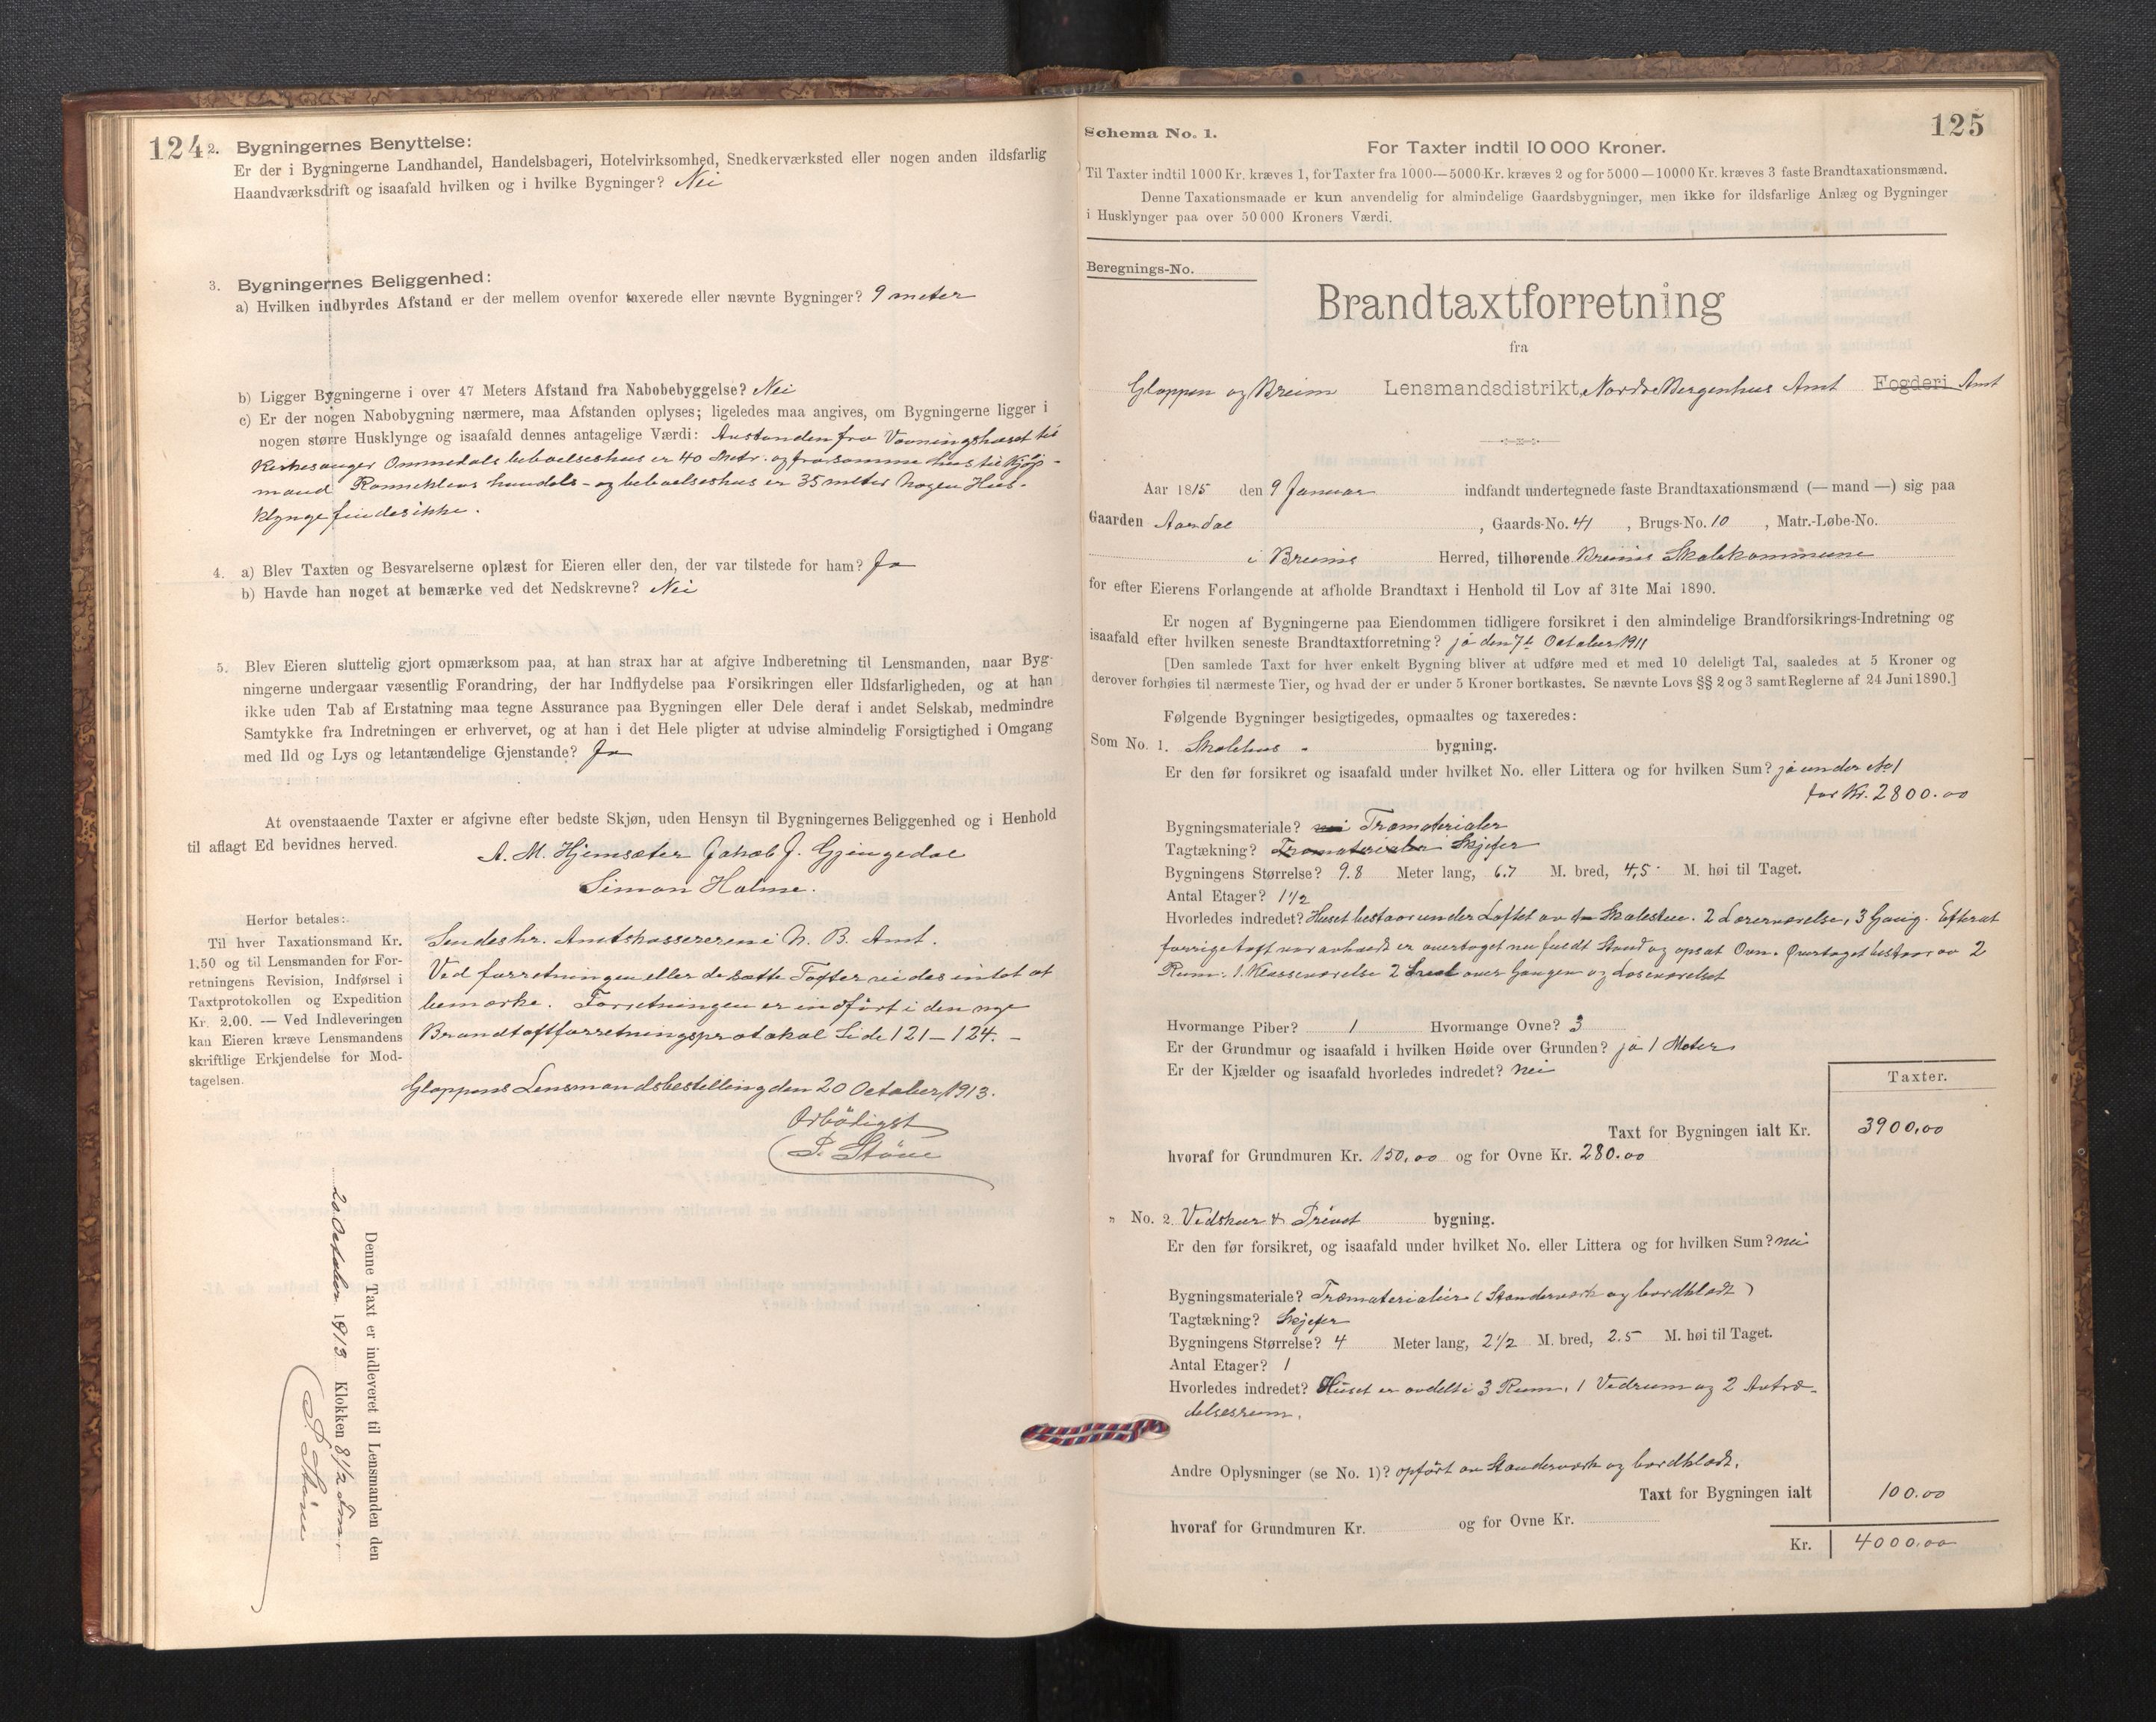 124
2. Bygningernes Benyttelse:
Er der i Bygningerne Landhandel, Handelsbageri, Hotelvirksomhed, Snedkerværksted eller nogen anden ildsfarlig
Haandværksdrift og isaafald hvilken og i hvilke Bygninger? Nei
3. Bygningernes Beliggenhed:
a) Hvilken indbyrdes Afstand er der mellem ovenfor taxerede eller nævnte Bygninger? 9 meter
b) Ligger Bygningerne i over 47 Meters Afstand fra Nabobebyggelse? Nei
c) Er der nogen Nabobygning nærmere, maa Afstanden oplyses; ligeledes maa angives, om Bygningerne ligger i
nogen større Husklynge og isaafald dennes antagelige Værdi: Avstanden fra Vaaningshuset til
Kirkesanger Ommedals beboelseshus er 40 Metr. og fra samme hus til Kjøp-
mand Rønneklevs handels- og beboelseshus er 35 meter Nogen Hus-
klynge findes ikke.
4. a) Blev Taxten og Besvarelserne oplæst for Eieren eller den, der var tilstede for ham? Ja
b) Havde han noget at bemærke ved det Nedskrevne? Nei
5. Blev Eieren sluttelig gjort opmærksom paa, at han strax har at afgive Indberetning til Lensmanden, naar Byg-
ningerne undergaar væsentlig Forandring, der har Indflydelse paa Forsikringen eller Ildsfarligheden, og at han
ikke uden Tab af Erstatning maa tegne Assurance paa Bygningen eller Dele deraf i andet Selskab, medmindre
Samtykke fra Indretningen er erhvervet, og at han i det Hele pligter at udvise almindelig Forsigtighed i Omgang
med Ild og Lys og letantændelige Gjenstande? Ja
At ovenstaaende Taxter er afgivne efter bedste Skjøn, uden Hensyn til Bygningernes Beliggenhed og i Henhold
til aflagt Ed bevidnes herved.
A. M. Hjemsæter Jakob J. Gjengedal
Simon Holme.
Herfor betales:
Til hver Taxationsmand Kr.
1.50 og til Lensmanden for For-
retningens Revision, Indførsel i
Taxtprotokollen og Expedition
Kr. 2.00. — Ved Indleveringen
kan Eieren kræve Lensmandens
skriftlige Erkjendelse for Mod-
tagelsen.
Sendes hr. Amtskassereren i N. B. Amt.
Ved forretningen eller de satte Taxter vides intet at
bemærke. Forretningen er indført i den nye
Brandtaxtforretningsprotokol Side 121 – 124. –
Gloppens Lensmandsbestilling den 20 October 1913.
Ærbødigst
P. Støve
Denne Taxt er indleveret til Lensmanden den
20 October 1913 Klokken 8 1/2 Fm.
P. Støve
125
Schema No. 1.
For Taxter indtil 10 000 Kroner.
Til Taxter indtil 1000 Kr. kræves 1, for Taxter fra 1000—5000 Kr. kræves 2 og for 5000—10000 Kr. kræves 3 faste Brandtaxationsmænd.
Denne Taxationsmaade er kun anvendelig for almindelige Gaardsbygninger, men ikke for ildsfarlige Anlæg og Bygninger
i Husklynger paa over 50 000 Kroners Værdi.
Beregnings-No.
Brandtaxtforretning
fra
Gloppen og Breim Lensmandsdistrikt, Nordre Bergenhus Amt Fogderi Amt
Aar 1815 den 9 Januar indfandt undertegnede faste Brandtaxationsmænd (— mand —) sig paa
Gaarden Aardal, Gaards-No. 41, Brugs-No. 10, Matr.-Løbe-No.
i Breims Herred, tilhørende Breims Skolekommune
for efter Eierens Forlangende at afholde Brandtaxt i Henhold til Lov af 31te Mai 1890.
Er nogen af Bygningerne paa Eiendommen tidligere forsikret i den almindelige Brandforsikrings-Indretning og
isaafald efter hvilken seneste Brandtaxtforretning? ja den 7de October 1911
[Den samlede Taxt for hver enkelt Bygning bliver at udføre med et med 10 deleligt Tal, saaledes at 5 Kroner og
derover forhøies til nærmeste Tier, og hvad der er under 5 Kroner bortkastes. Se nævnte Lovs §§ 2 og 3 samt Reglerne af 24 Juni 1890.]
Følgende Bygninger besigtigedes, opmaaltes og taxeredes:
Som No. 1. Skolehus - bygning.
Er den før forsikret og isaafald under hvilket No. eller Littera og for hvilken Sum? ja under No 1
for Kr. 2800.00
Bygningsmateriale? nei Træmaterialer
Tagtækning? Træmaterialer Skjefer
Bygningens Størrelse? 9.8 Meter lang, 6.7 M. bred, 4,5 M. høi til Taget.
Antal Etager? 1 1/2
Hvorledes indredet? Huset bestaar under Loftet av Skolestue. 2 Lærerværelse, 3 Gang. Efterat
forrige taxt var avholdt er overtaget nu fuldt Stand og opsat Ovn. Overtaget bestaar av 2
Rum: 1. Klasseværelse 2 over Gangen og Læseværelset
Hvormange Piber? 1 Hvormange Ovne? 3
Er der Grundmur og isaafald i hvilken Høide over Grunden? ja 1 Meter
Er der Kjælder og isaafald hvorledes indredet? nei
Taxter.
Taxt for Bygningen ialt Kr. 3900,00
hvoraf for Grundmuren Kr. 150,00 og for Ovne Kr. 280.00
„ No. 2. Vedskur & Privet bygning.
Er den før forsikret, og isaafald under hvilket No. eller Littera og for hvilken Sum? nei
Bygningsmateriale? Træmaterialier (Standerværk og bordklædt)
Tagtækning? Skjefer
Bygningens Størrelse? 4 Meter lang, 2 1/2 M. bred, 2.5 M. høi til Taget.
Antal Etager? 1
Hvorledes indredet? Huset er avdelt i 3 Rum, 1 Vedrum og 2 Avtræ-
delsesrum.
Andre Oplysninger (se No. 1)? opført av Standerværk og bordklædt.
Taxt for Bygningen ialt 100.00
hvoraf for Grundmuren Kr. og for Ovne Kr.
Kr. 4000,00